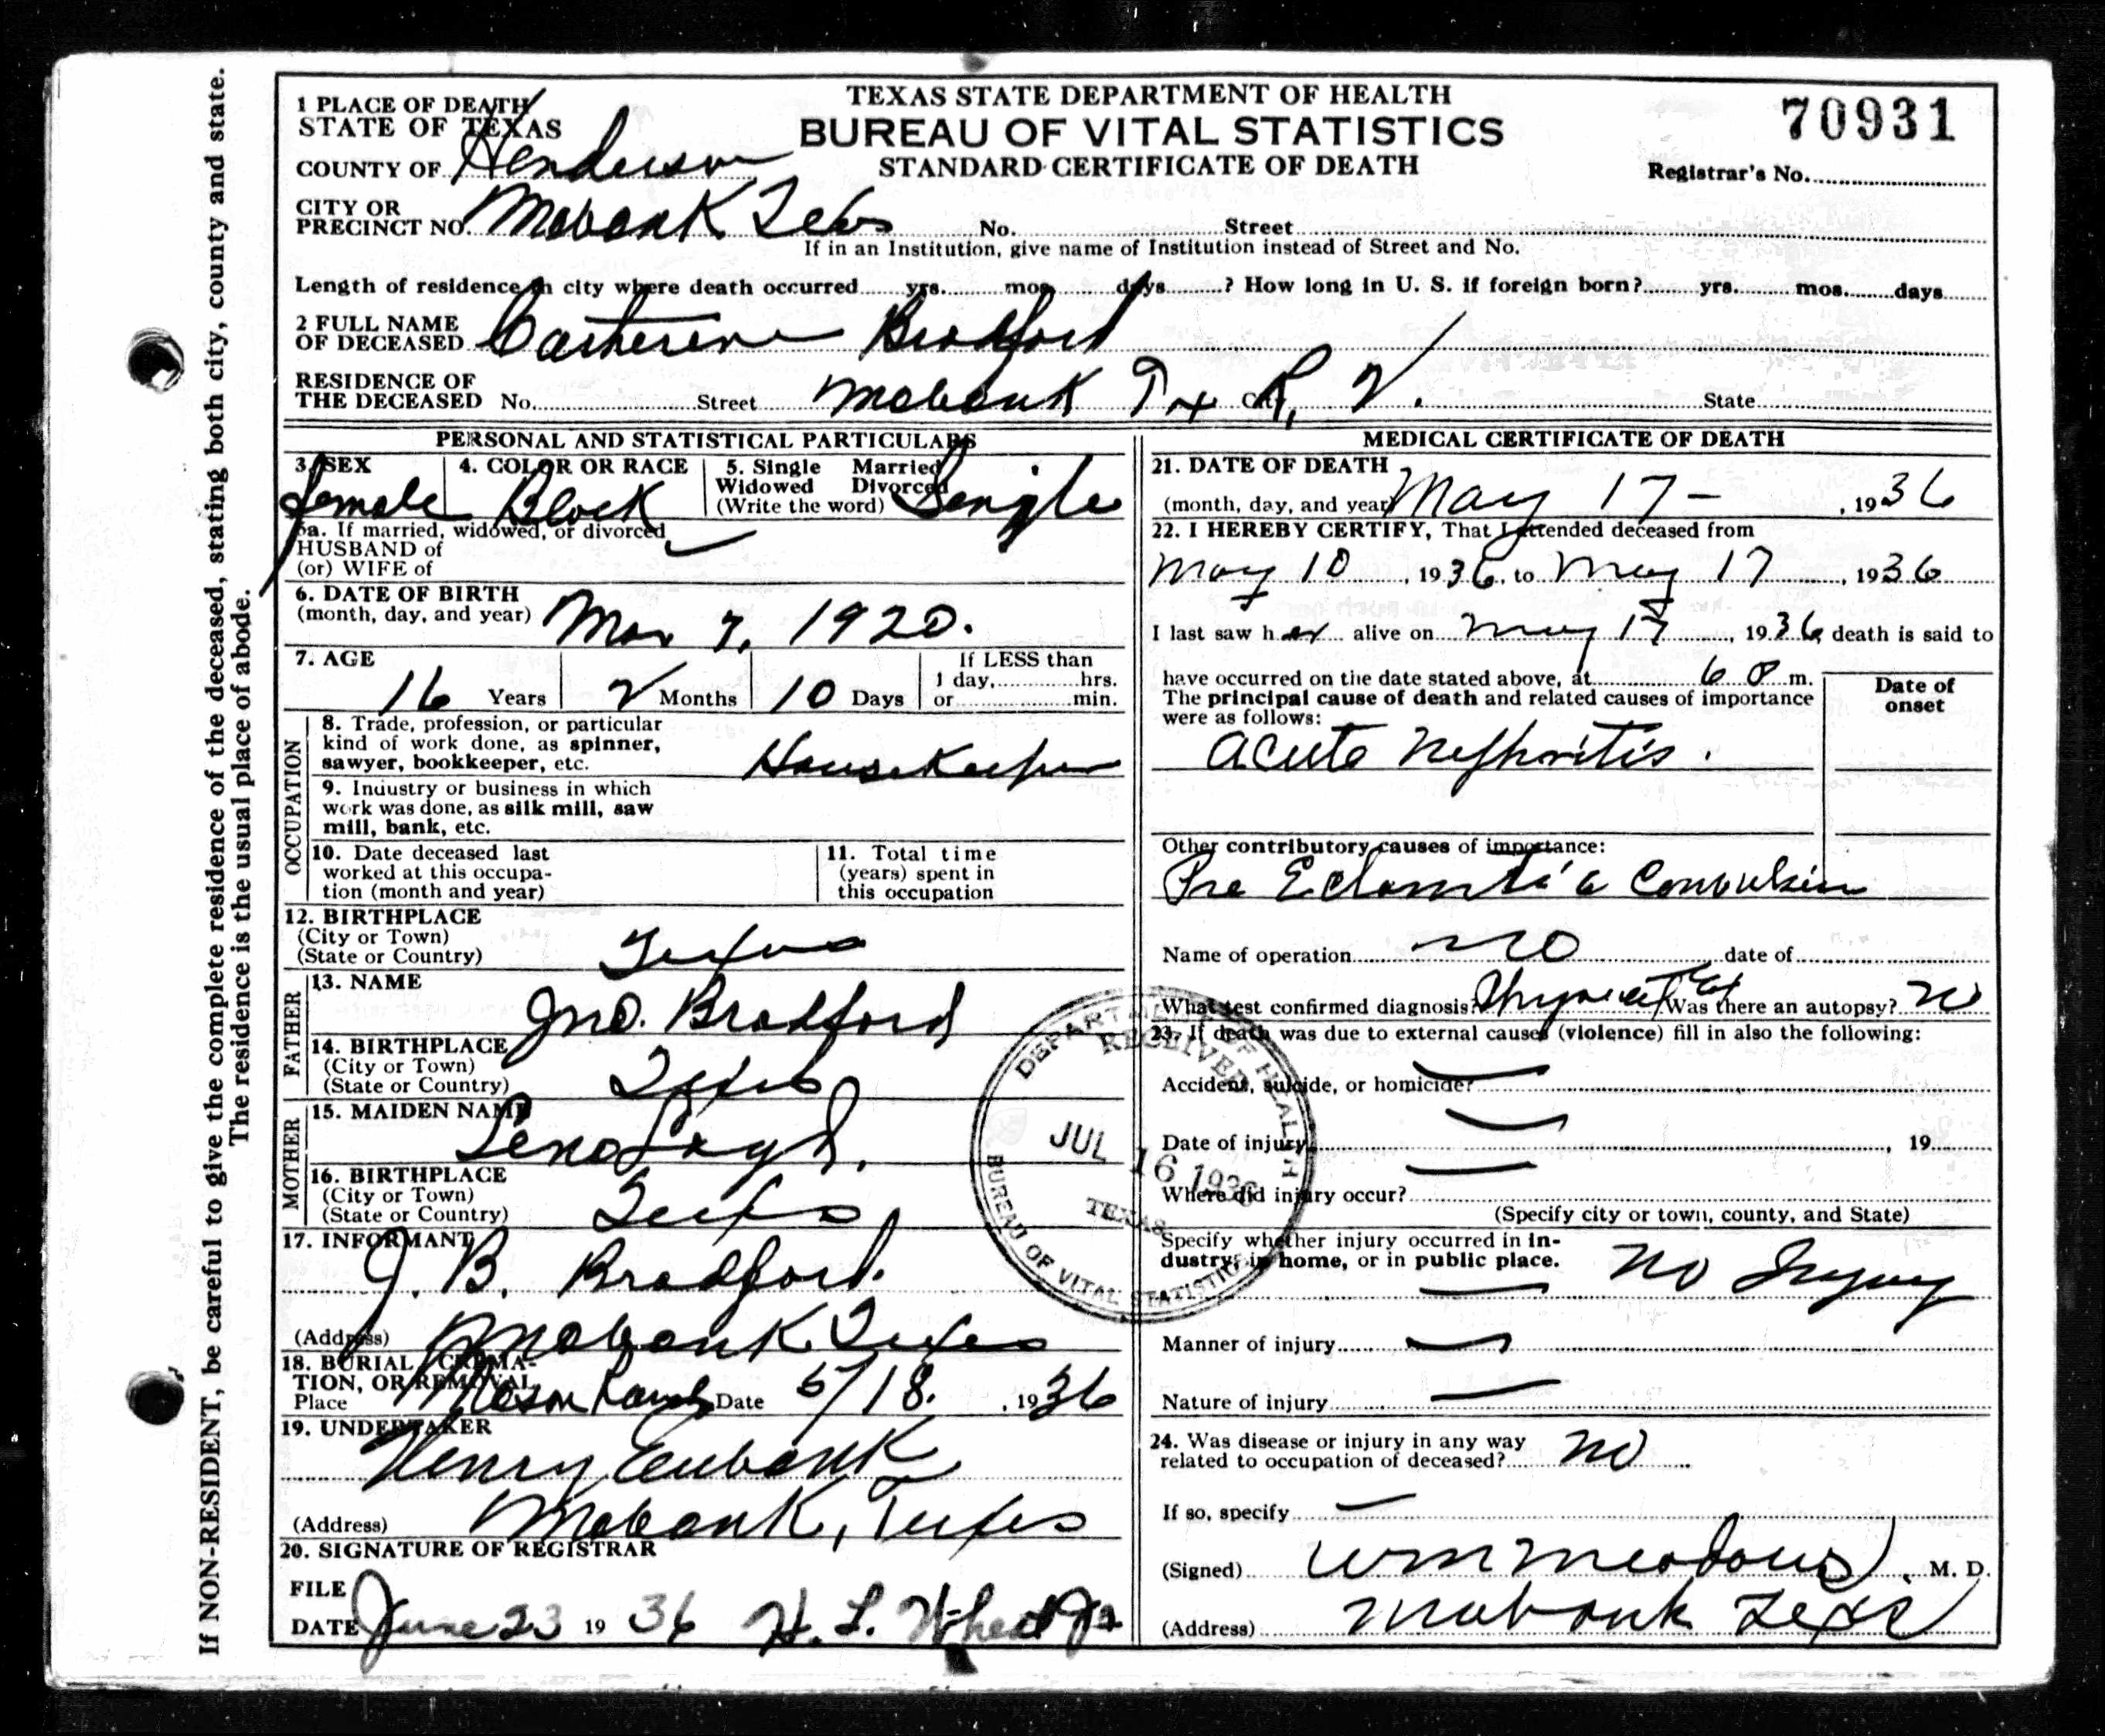 If NON-RESIDENT, be careful to give the complete residence of the deceased, stating both city, county and state.
The residence is the usual place of abode.
TEXAS STATE DEPARTMENT OF HEALTH
BUREAU OF VITAL STATISTICS
STANDARD CERTIFICATE OF DEATH
70931
Registrar's No.
1 PLACE OF DEATH
STATE OF TEXAS
COUNTY OF Henderson
CITY OR
PRECINCT NO. Mabank Texas No. Street
If in an Institution, give name of Institution instead of Street and No.
Length of residence in city where death occurred yrs. mos. days ? How long in U. S. if foreign born? yrs. mos. days
2 FULL NAME
OF DECEASED Catherine Bradford
RESIDENCE OF
THE DECEASED No. Street Mabank Tx City R, 2. State
PERSONAL AND STATISTICAL PARTICULARS
3. SEX female
4. COLOR OR RACE Black
5. Single Married
Widowed Divorced
(Write the word) Single
5a. If married, widowed, or divorced
HUSBAND of
(or) WIFE of
6. DATE OF BIRTH
(month, day, and year) Mar 7, 1920.
7. AGE
16 Years 2 Months 10 Days
If LESS than
1 day, hrs.
or min.
OCCUPATION
8. Trade, profession, or particular
kind of work done, as spinner,
sawyer, bookkeeper, etc. HouseKeeper
9. Industry or business in which
work was done, as silk mill, saw
mill, bank, etc.
10. Date deceased last
worked at this occupa-
tion (month and year)
11. Total time
(years) spent in
this occupation
12. BIRTHPLACE
(City or Town)
(State or Country) Texas
FATHER
13. NAME
Jno. Bradford
14. BIRTHPLACE
(City or Town)
(State or Country) Texas
MOTHER
15. MAIDEN NAME
Lena
16. BIRTHPLACE
(City or Town)
(State or Country) Texas
17. INFORMANT
J. B. Bradford.
(Address) Mabank Texas
18. BURIAL, CREMA-
TION, OR REMOVAL
Place Date 5/18. , 1936
19. UNDERTAKER
Henry Eubank
(Address) Mabank, Texas
20. SIGNATURE OF REGISTRAR
FILE
DATE June 23 19 36 H. L. Wheat Jr
MEDICAL CERTIFICATE OF DEATH
21. DATE OF DEATH
(month, day, and year) May 17 - , 1936
22. I HEREBY CERTIFY, That I attended deceased from
May 10 , 1936, to May 17 , 1936
I last saw her alive on May 17 , 1936, death is said to
have occurred on the date stated above, at m.
The principal cause of death and related causes of importance
were as follows:
Date of
onset
Acute Nephritis.
Other contributory causes of importance:
Pre Eclamtia Convulsion
Name of operation no date of
What test confirmed diagnosis? Was there an autopsy? no
23. If death was due to external causes (violence) fill in also the following:
Accident, suicide, or homicide?
Date of injury , 19
Where did injury occur?
(Specify city or town, county, and State)
Specify whether injury occurred in in-
dustry, in home, or in public place. No Injury
Manner of injury
Nature of injury
24. Was disease or injury in any way
related to occupation of deceased? no
If so, specify
(Signed) Wm Meadows , M. D.
(Address) Mabank Texas
DEPARTMENT OF HEALTH
RECEIVED
JUL 16 1936
TEXAS
BUREAU OF VITAL STATISTICS